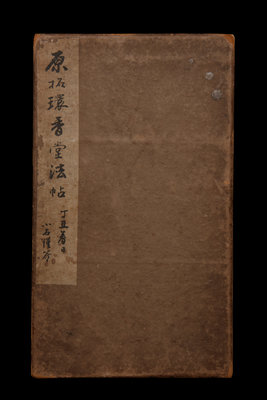 原拓環香堂法帖
丁丑春日